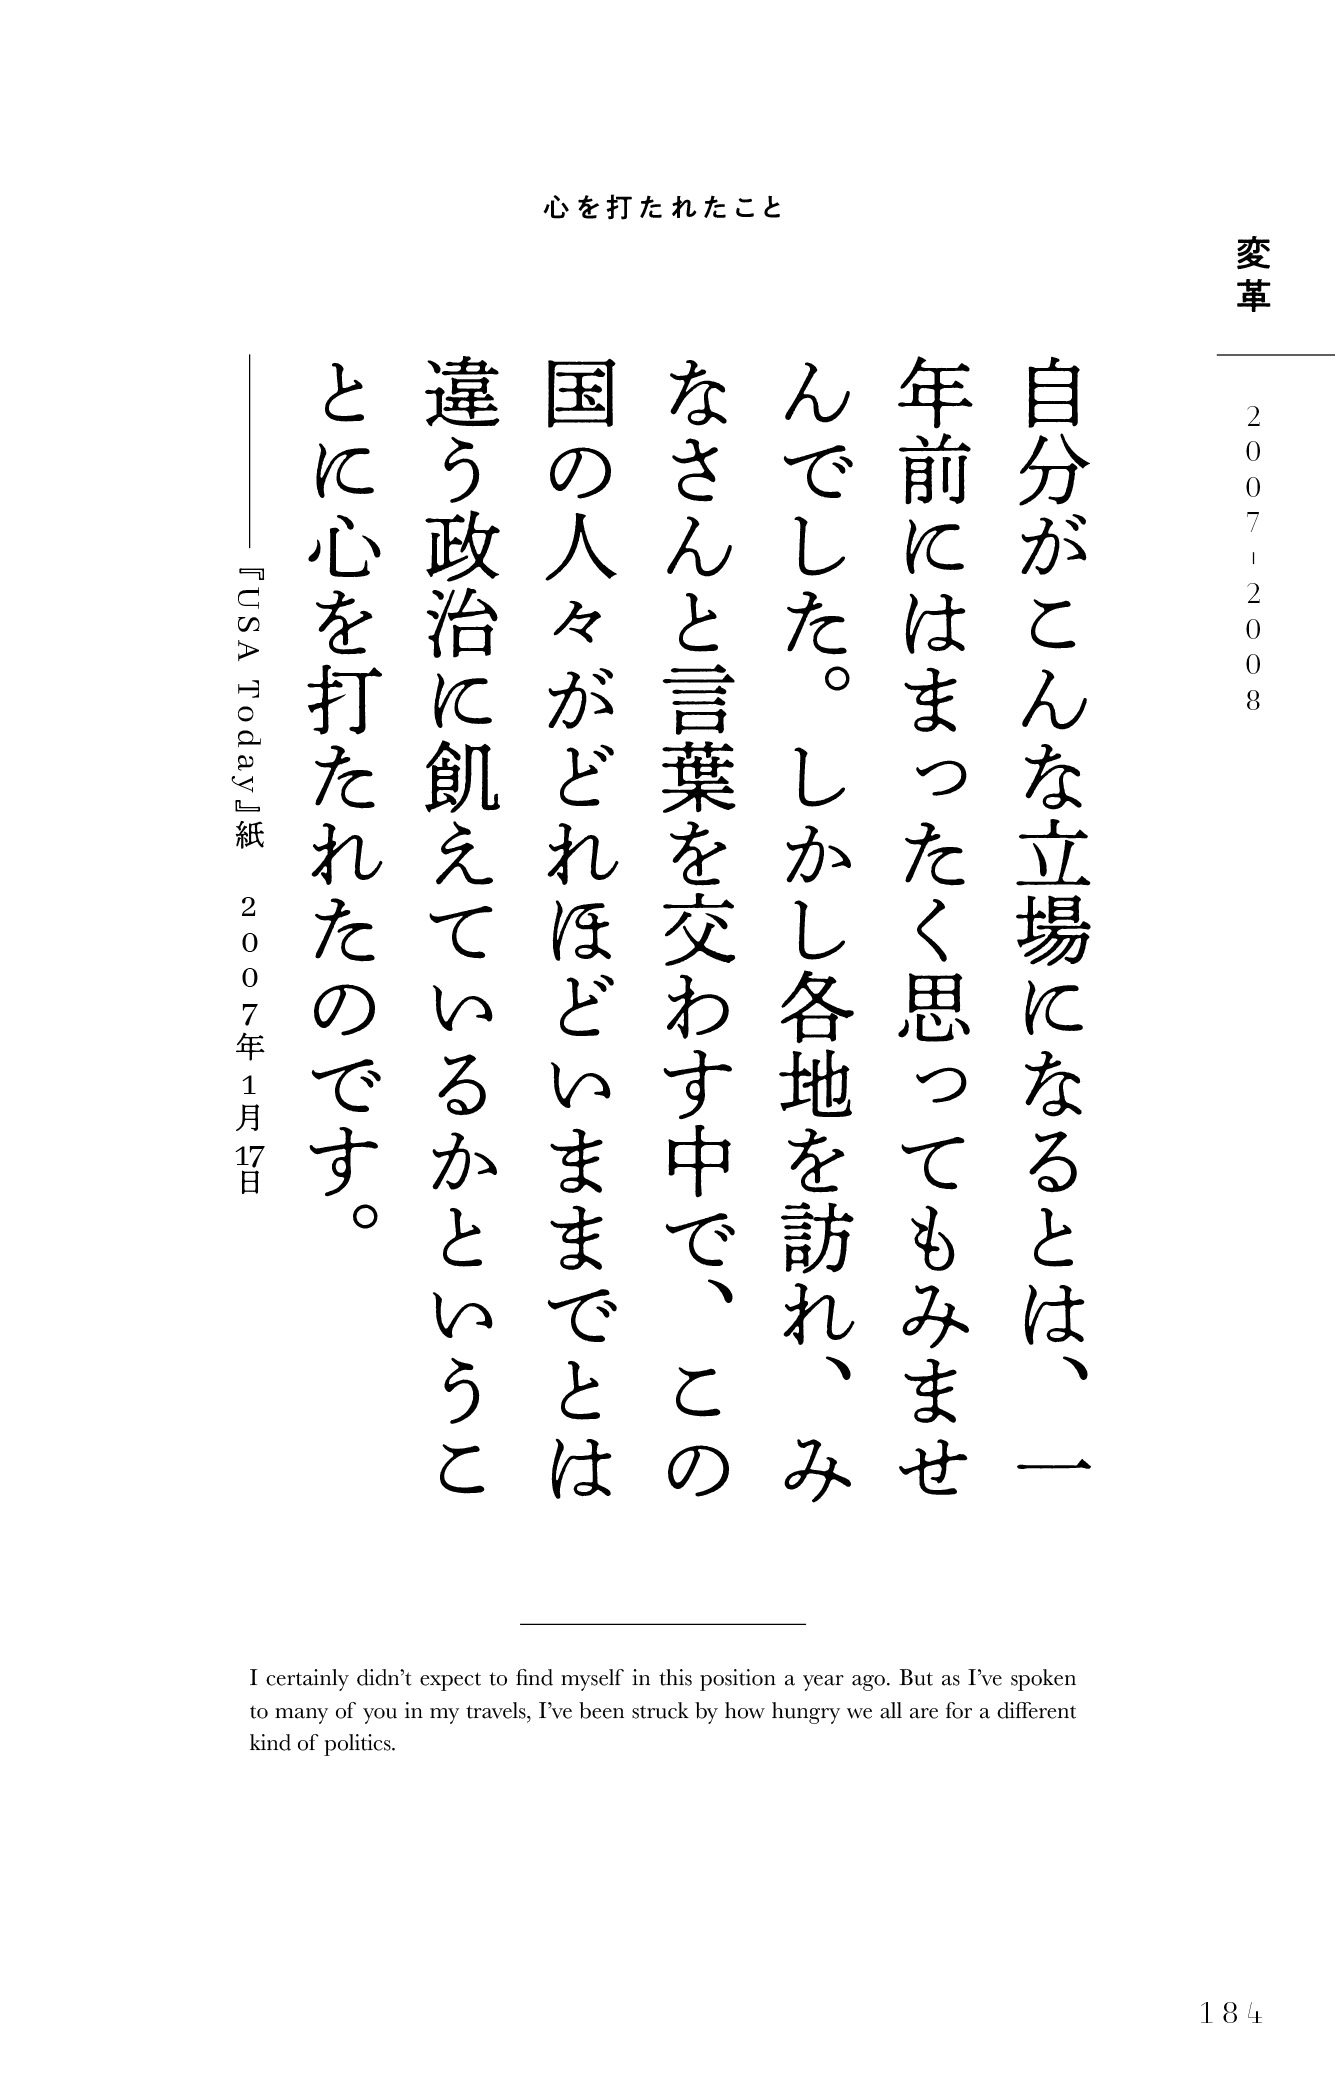 心を打たれたこと
変革
2007-2008
自分がこんな立場になるとは、一
年前にはまったく思ってもみませ
んでした。しかし各地を訪れ、み
なさんと言葉を交わす中で、この
国の人々がどれほどいままでとは
違う政治に飢えているかというこ
とに心を打たれたのです。
――『USA Today』紙　2007年1月17日
I certainly didn’t expect to find myself in this position a year ago. But as I’ve spoken
to many of you in my travels, I’ve been struck by how hungry we all are for a different
kind of politics.
184